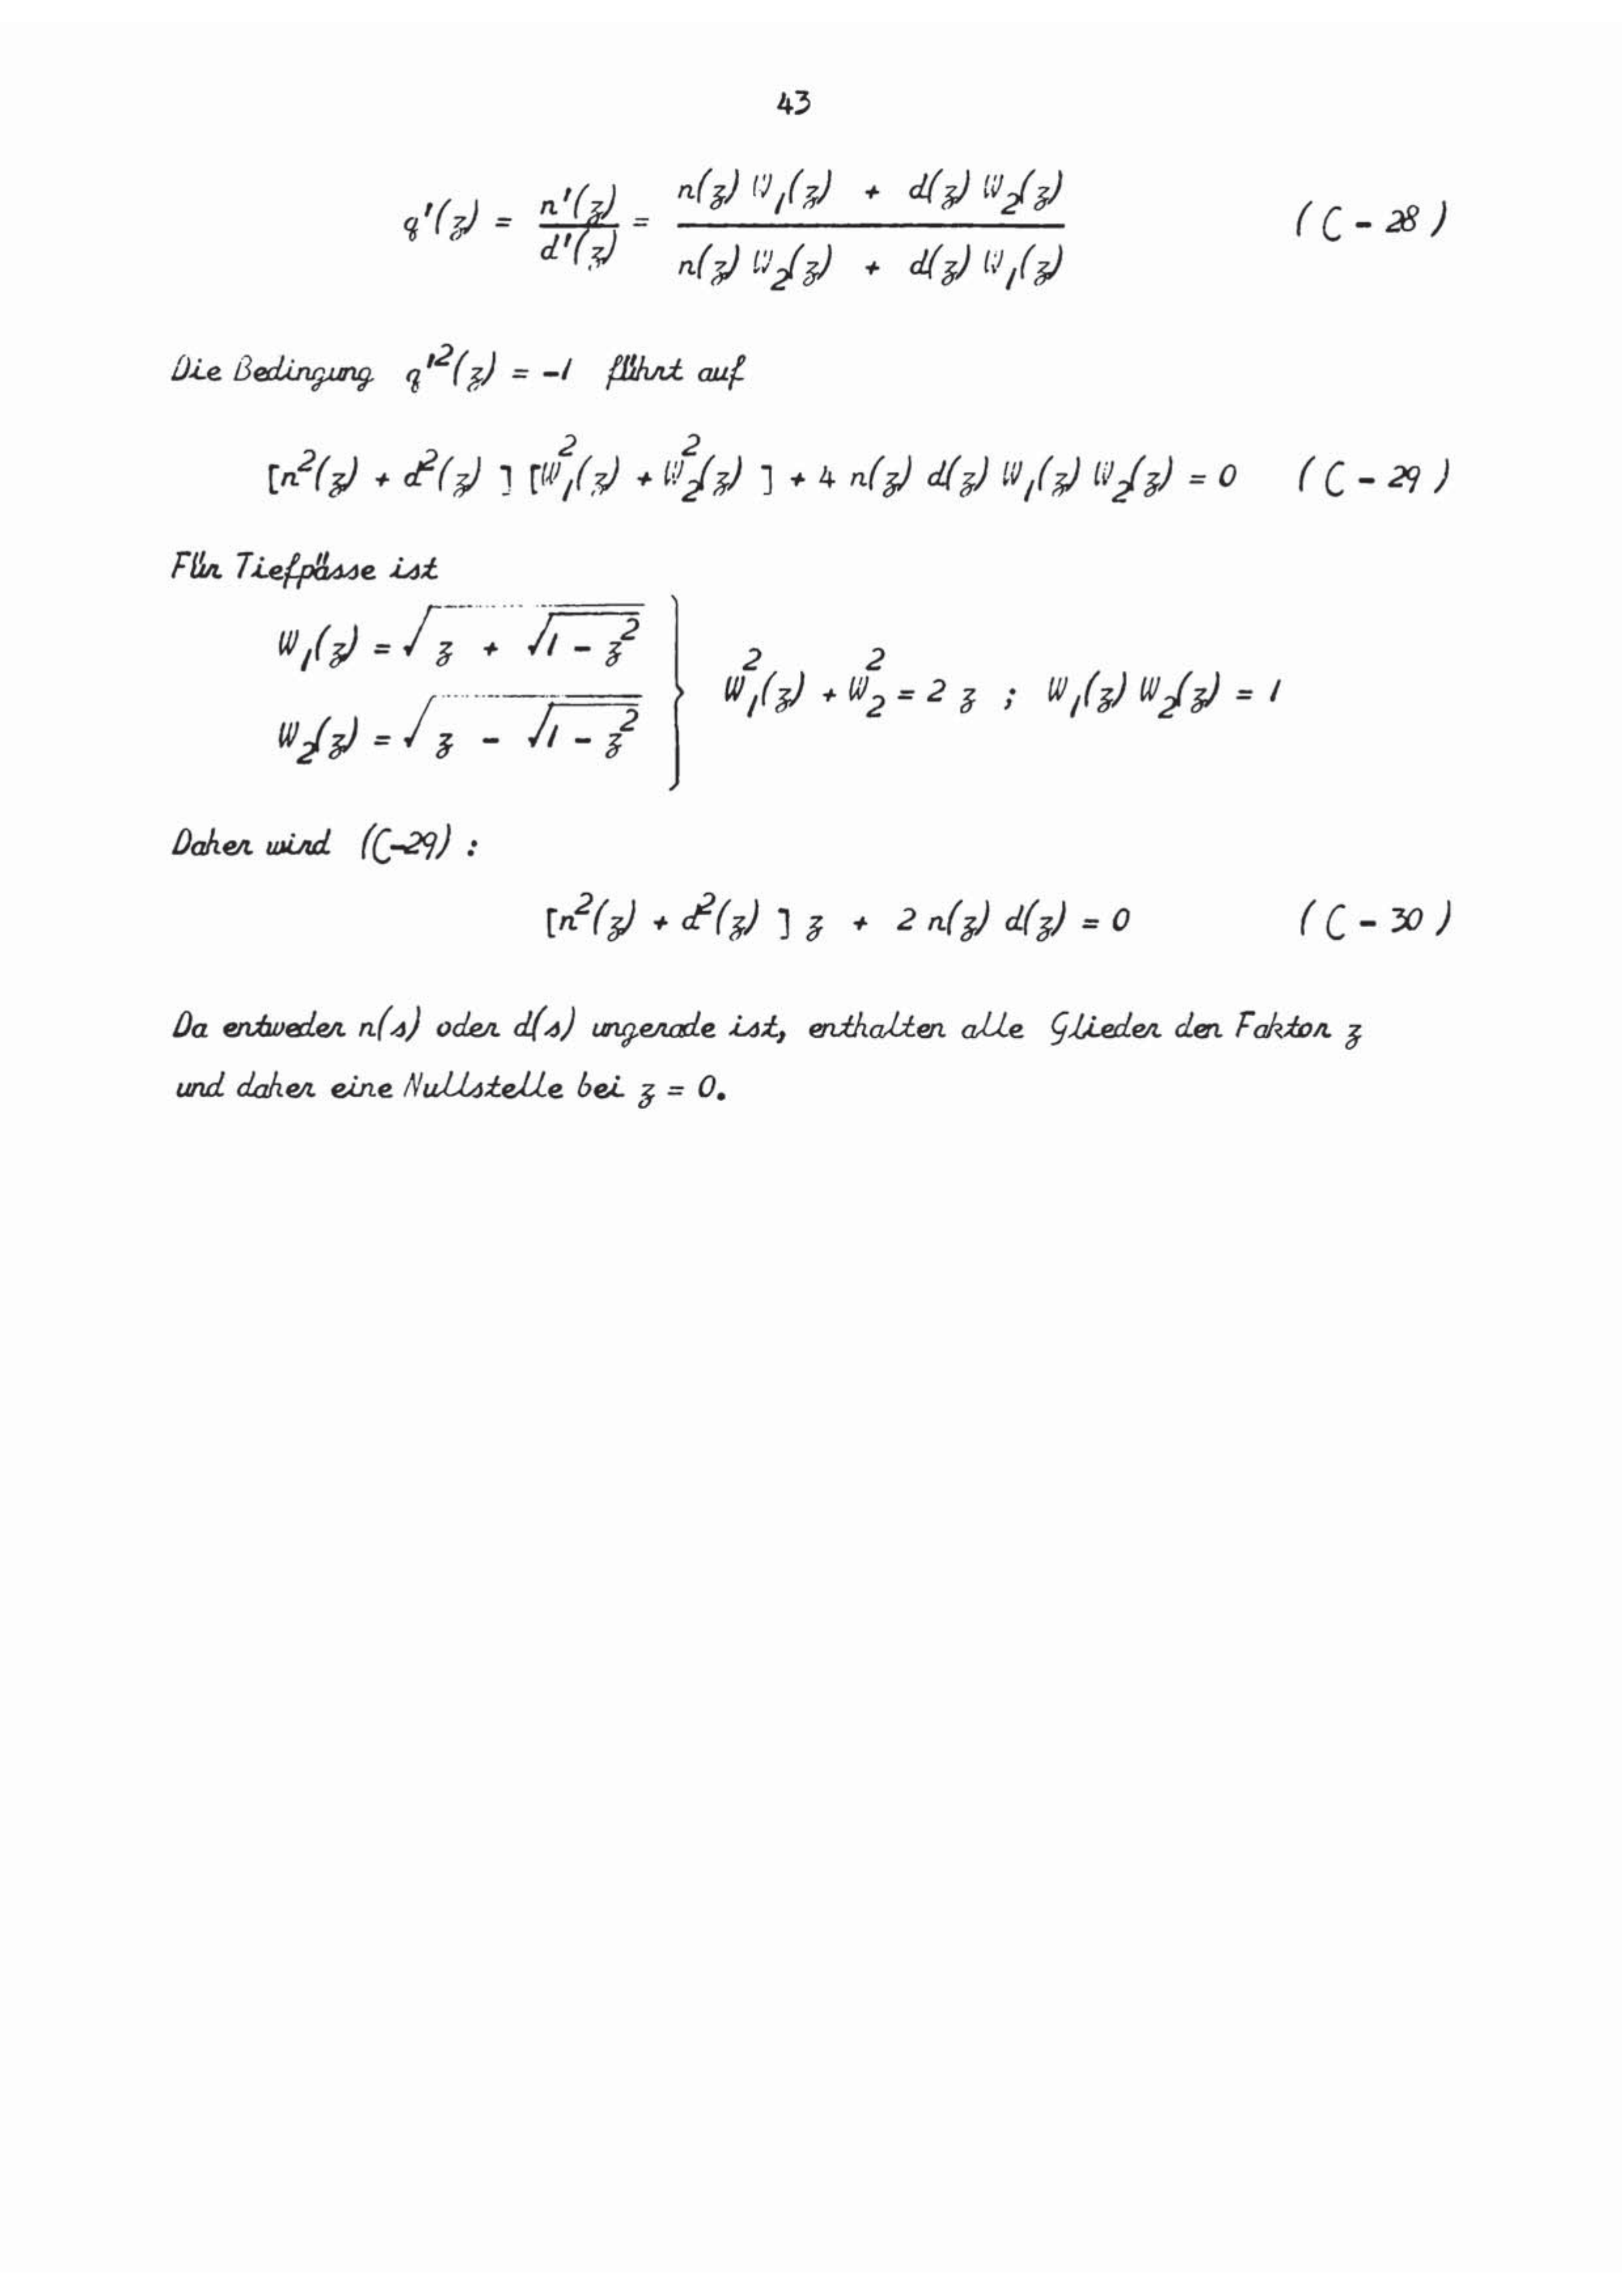 43
q'(z) = n'(z)/d'(z) = (n(z) W₁(z) + d(z) W₂(z))/(n(z) W₂(z) + d(z) W₁(z)) (C - 28)
Die Bedingung q'²(z) = -1 führt auf
[n²(z) + d²(z)] [W₁²(z) + W₂²(z)] + 4 n(z) d(z) W₁(z) W₂(z) = 0 (C - 29)
Für Tiefpässe ist
W₁(z) = √(z + √(1 - z²))
W₂(z) = √(z - √(1 - z²)) } W₁²(z) + W₂² = 2 z ; W₁(z) W₂(z) = 1
Daher wird (C-29) :
[n²(z) + d²(z)] z + 2 n(z) d(z) = 0 (C - 30)
Da entweder n(s) oder d(s) ungerade ist, enthalten alle Glieder den Faktor z
und daher eine Nullstelle bei z = 0.